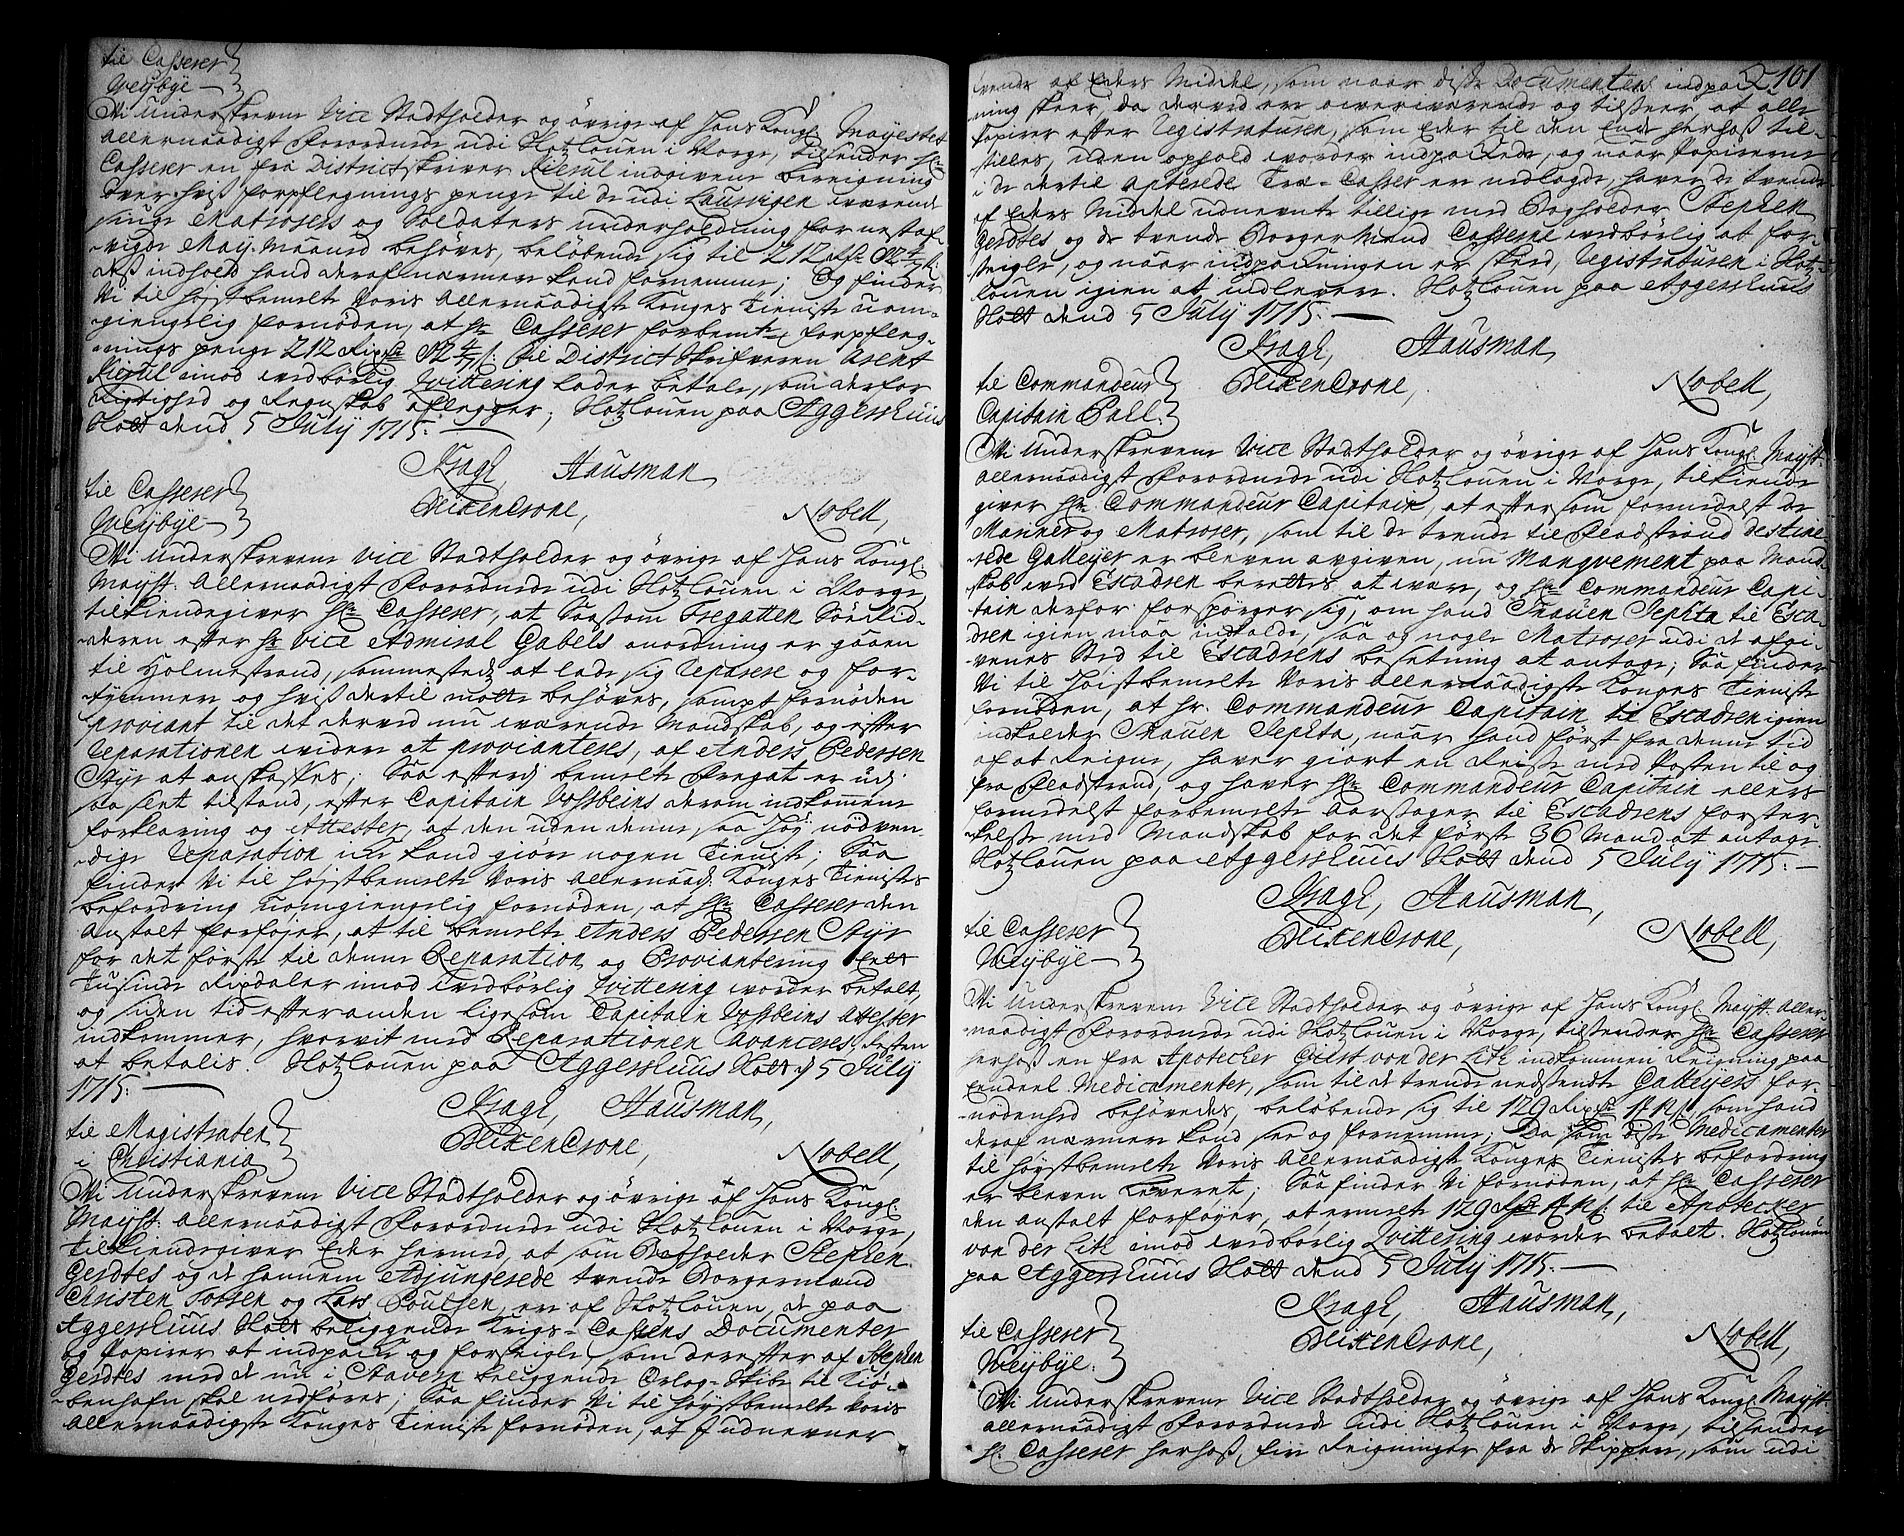 til Casserer
Weybye
Wi underskrevene Vice Stadtholder og øvrige af Hans Kongl. Mayestet
allernaadigst Forordnede udi Slotzlouen i Norge, tilsender Hr.
Casserer en fra Districtskriver Riesul indgivene bereigning
over hvis forpflegnings penge til de udi Laurvigen værende
siuge Matrosers og Soldaters underholdning for nestaf-
vigde May. Maaned behøves, beløbende sig til 212 Rdr. 82 4/7 s:
dess indhold hand deraf nærmere kand fornemme; Og finder
Vi til højstbemelte Voris Allernaadigste Konges Tieniste uom-
giengelig fornøden, at Hr. Casserer forbemte forpfleg-
nings penge 212 Rixdr. 82 4/7 s: til District Skrifveren Arent
Riesul imod vedbørlig Qvittering lader betale, som derfor
Rigtighed og Regnskab aflegger; Slotzlouen paa Aggershuus
Slott dend 5 July 1715.
Krage, Hausman
til Casserer
Weybye
BlixenCrone, Nobell,
Wi underskrevene Vice Stadtholder og øvrige af Hans Kongl.
Mayst. Allernaadigst Forordnede udi Slotzlouen i Norge,
tilkiendegiver Hr. Casserer, at Saasom Fregatten Sørid-
deren efter Hr. Vice Admiral Gabels anordning er gaaen
til Holmestrand, sammestedz at lade sig reparere og for-
tymmere og hvis dertil motte behøves, sampt fornøden
proviant til det derved nu værende Mandskab, og efter
reparationen videre at provianteres, af Anders Pedersen
Styr at anskaffes; Saa efterdj bemelte Fregat er udj
saa slet tilstand, efter Capitain Vosbeins derom indkomne
forklaring og Attester, at den uden denne saa høj nødven-
dige Reparation icke kand giøre nogen Tieniste; Saa
finder Vi til højstbemelte Voris Allernaad: Konges Tienistes
befordring uomgiengelig fornøden, at Hr. Casserer den
Anstalt forføjer, at til bemelte Anders Pedersen Styr
for det første til denne Reparation og Proviantering Eet
Tusinde Rixdaler imod vedbørlig Qvittering vorder betalt,
og siden tid efter anden ligesom Capitain Vosbeins Attester
indkommer, hvorvit med Reparationen Avanceres, Resten
at betalis. Slotzlouen paa Aggershuus Slott dj 5 July
1715.
Krage, Hausman,
til Magistraten
i Christiania
BlixenCrone, Nobell,
Wi underskrevene Vice Stadtholder og øvrige af Hans Kongl.
Mayst. allernaadigst Forordnede udi Slotzlouen i Norge,
tilkiendegiver Eder hermed, at som Bogholder Stephen
Gerdtes og de hannem Adjungerede trende Borgermænd
Christen Torsen og Lars Poulsen, er af Slotzlouen, de paa
Aggershuus Slott beliggende Krigs-Cassens Documenter
og papirer at indpacke og forseigle, som derefter af Stephen
Gerdtes med de nu i Stavern beliggende Orlog-Skibe til Kiø-
benhafn skal nedføres; Saa finder Vi til høystbemelte Voris
Allernaadigste Konges Tieniste fornøden, at I udnevner
101
tvende af Eders Middel, som naar disse Documenters indpack-
ning skeer, da derved ere overværende og tilseer, at alle
papirer efter Registraturen, som Eder til den Ende herhos til-
stilles, uden ophold vorder indpackede, og naar Papirerne
i de dertil Apterede Træ-Casser er nedlagde, haver de tvende
af Eders Middel udnevnte tillige med Bogholder Stephen
Gerdtes og de tvende Borger Mænd Casserne vedbørlig at for-
seigle, og naar indpackningen er skeed, Registraturen i Slotz-
louen igien at indlevere. Slotzlouen paa Aggershuus
Slott dend 5 July 1715.
Krage, Hausman,
til Commandeur
Capitain Pall.
BlixenCrone, Nobell,
Wi Underskrevene Vice Stadtholder og øvrige af Hans Kongl. Mayst.
allernaadigst Forordnede udi Slotzlouen i Norge, tilkiende
giver Hr. Commandeur Capitain, at eftersom formedelst de
Mariner og Matroser, som til de trende til Fladstrand destine-
rede Galleyer er bleven avgiven, nu Manqvement paa Mand-
skab ved Escadren berettes at være, og Hr. Commandeur Capi-
tain derfor forspørger sig, om hand Snauen Jephta til Esca-
dren igien maa indkalde, saa og nogle Matroser udi de afgi-
venes Sted til Escadrens besetning at antage; Saa finder
Vi til Høistbemelte Voris Allernaadigste Konges Tieniste
fornøden, at Hr. Commandeur Capitain til Escadren igien
indkalder Snauen Jephta, naar hand først fra denne tid
af at Reigne, haver giort en Reise med Posten til og
fra Fladstrand, og haver Hr. Commandeur Capitain ellers
formedelst forbemelte aarsager til Escadrens forster-
kelse med Mandskab for det første 36 Mand at antage
Slotzlouen paa Aggershuus Slott dend 5 July 1715.
Krage, Hausman,
til Casserer
Weybye
BlixenCrone, Nobell,
Wi Underskrevene Vice Stadtholder og øvrige af Hans Kongl. Mayst. Aller-
naadigst Forordnede udi Slotzlouen i Norge, tilsender Hr. Casserer
herhos en fra Apotecher von der Lith indkommen Reigning paa
Eendeel Medicamenter, som til de trende nedsendte Galleyers for-
nødenhed behøvedes, beløbende sig til 129 Rixdr. s:, som hand
deraf nærmere kand see og fornemme; Da som disse Medicamenter
til høystbemelte Voris Allernaadigste Konges Tienistes befordring
er bleven Leveret; Saa finder Vi fornøden, at Hr. Casserer
den anstalt forføyer, at ermelte 129 Rdr. s: til Apotecker
von der Lith imod vedbørlig Qvittering vorder betalt. Slotzlouen
paa Aggershuus Slott dend 5 July 1715.
Krage, Hausman,
til Casserer
Weybye.
BlixenCrone, Nobell,
Wi Underskrevene Vice Stadtholder og øvrige af Hans Kongl. Mayst.
allernaadigst Forordnede udi Slotzlouen i Norge, tilsender
Hr. Casserer herhos, fire Reigninger fra de Skippere, som udi